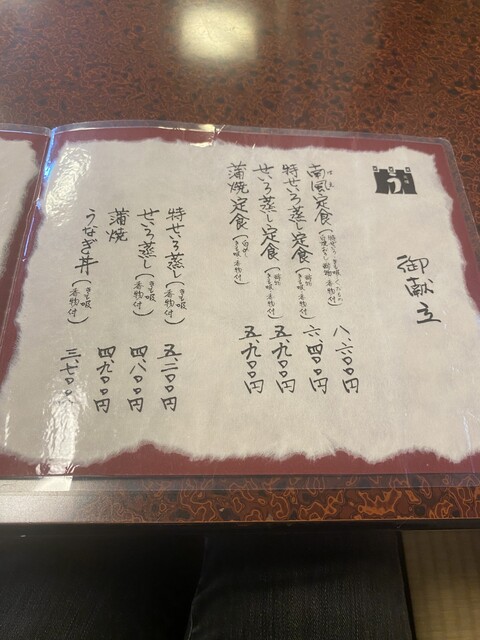 う
御献立
南風定食
八、六〇〇円
特せいろ蒸し定食
六、四〇〇円
せいろ蒸し定食
五、九〇〇円
蒲焼定食
五、九〇〇円
特せいろ蒸し（きも吸 香物付）
五、二〇〇円
せいろ蒸し（きも吸 香物付）
四、八〇〇円
蒲焼
四、九〇〇円
うなぎ丼（きも吸 香物付）
三、七〇〇